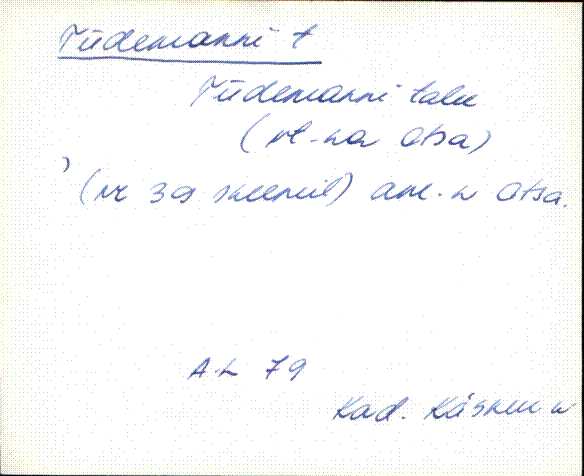 Tüdemanni t
Tüdemanni talu
otsa)
(nr 39 skeemil) otsa.
A-L 79
Kad. Käsmu